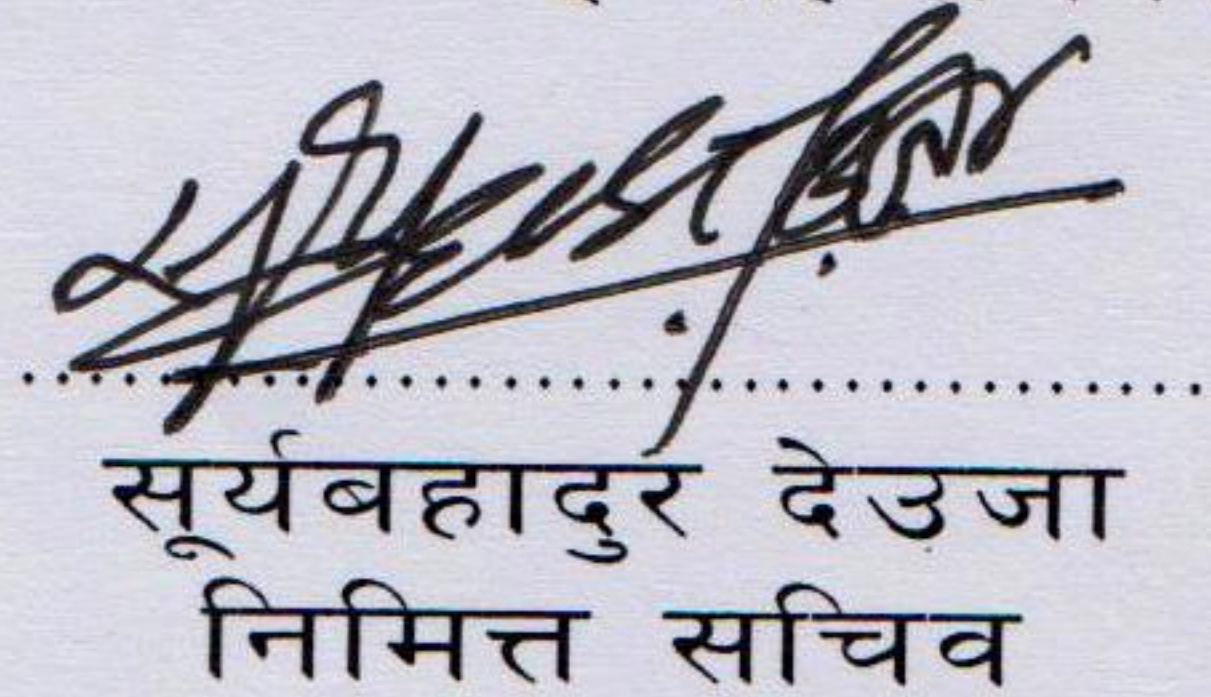 सूर्यबहादुर देउजा
निमित्त सचिव